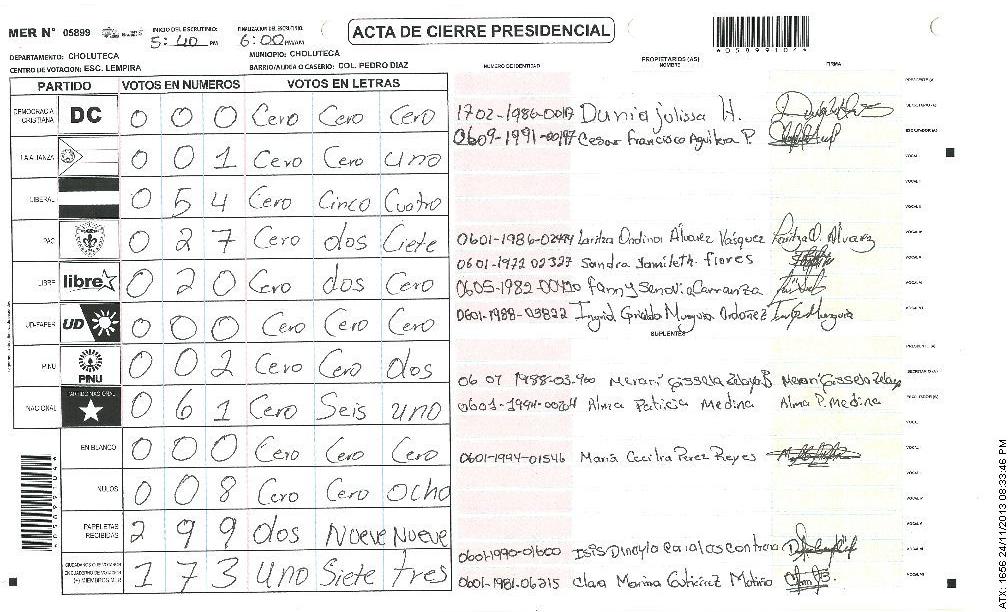 MER N° 05899
INICIO DEL ESCRUTINIO: 5:40 PM
FINALIZACION DEL ESCRUTINIO: 6:00 PM/AM
ACTA DE CIERRE PRESIDENCIAL
A058991074
DEPARTAMENTO: CHOLUTECA
MUNICIPIO: CHOLUTECA
CENTRO DE VOTACION: ESC. LEMPIRA
BARRIO/ALDEA O CASERIO: COL. PEDRO DIAZ
NUMERO DE IDENTIDAD
PROPIETARIOS (AS)
NOMBRE
FIRMA
PARTIDO VOTOS EN NUMEROS VOTOS EN LETRAS
DEMOCRACIA CRISTIANA DC 0 0 0 Cero Cero Cero
LA ALIANZA 0 0 1 Cero Cero uno
LIBERAL 0 5 4 Cero Cinco Cuatro
PAC 0 2 7 Cero dos Ciete
LIBRE libre 0 2 0 Cero dos Cero
UD-FAPER UD 0 0 0 Cero Cero Cero
PINU PINU 0 0 2 Cero Cero dos
NACIONAL PARTIDO NACIONAL 0 6 1 Cero Seis uno
EN BLANCO 0 0 0 Cero Cero Cero
NULOS 0 0 8 Cero Cero ocho
PAPELETAS RECIBIDAS 2 9 9 dos Nueve Nueve
1 7 3 Uno Siete tres
1702-1986-0017 Dunia Julissa H.
0609-1991-00197 Cesar Francisco Aguilera P.
Alvarez Vásquez
0601-1972 02327 Sandra Yamileth. flores
0605-1982 Carranza
0601-1988-03822 Ingrid
SUPLENTES
Merari Gissela Zelaya
Alma Patricia Medina Alma P. Medina
0601-1994-01546 Maria Cecilia Perez Reyes
0601-1990-01600 Isis
0601-1981-06215 Clara Marina Gutiérrez
ATX: 1656 24/11/2013 08:33:46 PM